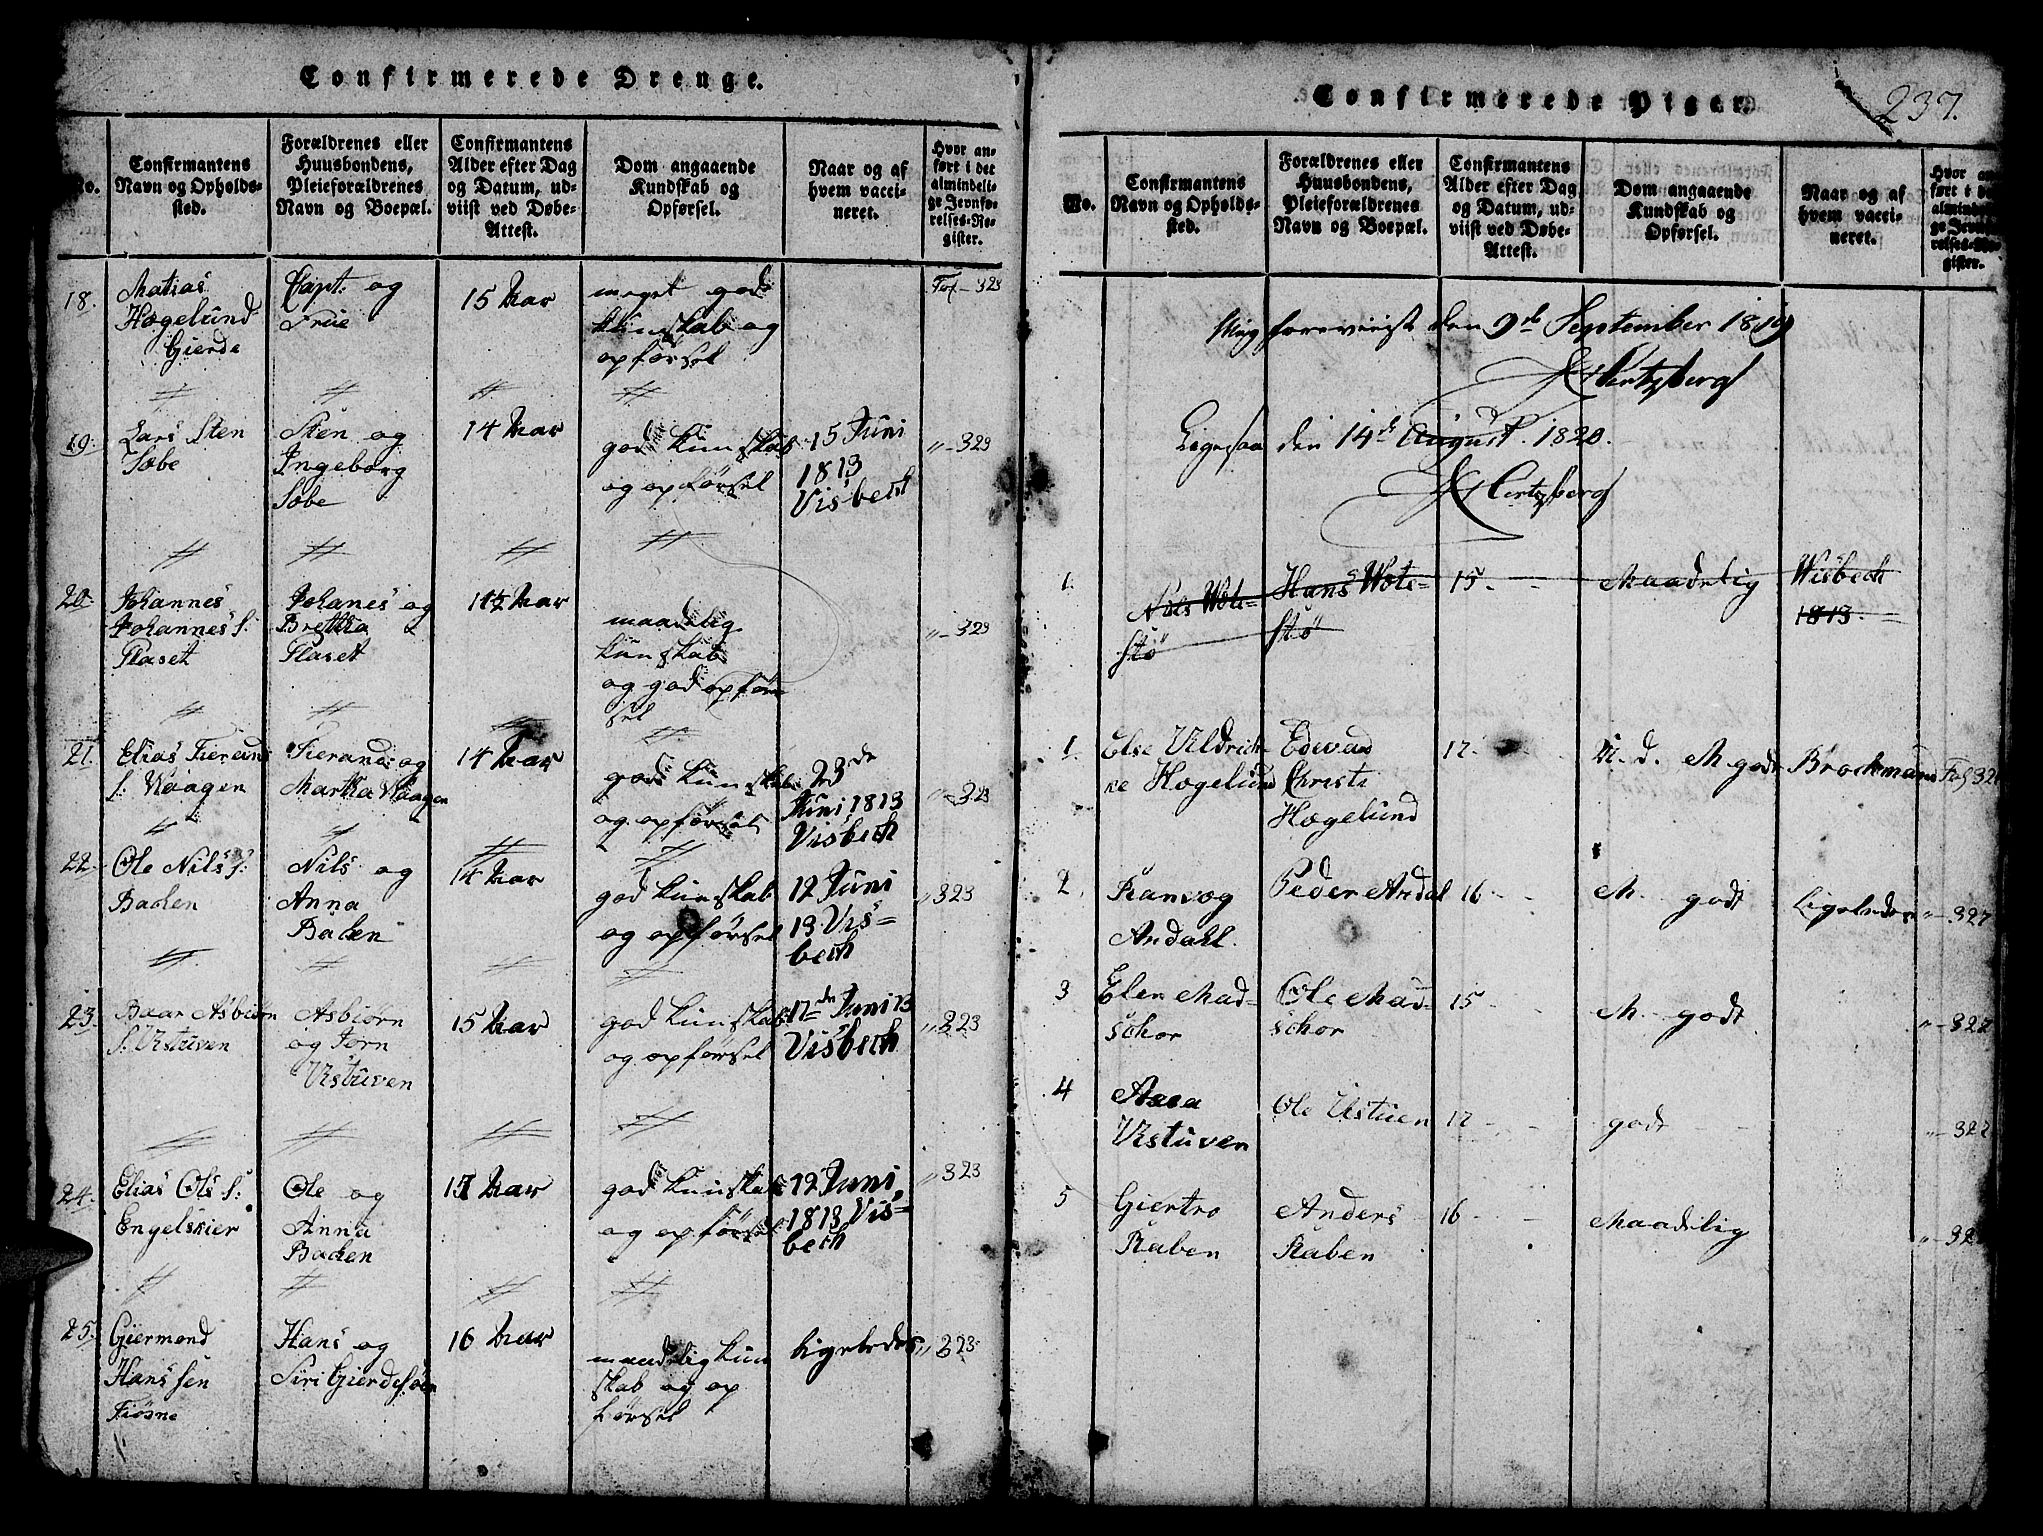 Confirmerede Drenge.
No.
Confirmantens
Navn og Opholds-
sted.
Forældrenes eller
Huusbondens,
Pleieforældrenes
Navn og Boepæl.
Confirmantens
Alder efter Dag
og Datum, ud-
viist ved Døbe-
Attest.
Dom angaaende
Kundskab og
Opførsel.
Naar og af
hvem vacci-
neret.
Hvor an-
ført i det
almindeli-
ge Jevnfø-
relses-Re-
gister.
18.
Matias
Hogelund
Gierde
Capt: og
Frue
15 Aar
meget god
kunskab og
opførsel
Fol - 323
19.
Lars Sten
Søbe
Sten og
Ingeborg
Søbe
14 Aar
god kunskab
og opførsel
15 Juni
1813
Visbech
" - 323
20
Johannes
Johannes s:
Flaset
Johanes og
Brettha
Flaset
Aar
maadelig
kunskab
og god opfør
sel
" - 323
21.
Elias
s. Waagen
og
Martha Waagen
14 Aar
god kunskab
og opførsel
23de
Juni 1813
Visbech
" - 323
22.
Ole Nils s:
Bachen
Nils og
Anna
Bachen
14 Aar
god kunskab
og opførsel
12 Juni
13 Vis=
bech
" 323
23.
Baar Asbiørn
s. Ustuven
Asbiørn
og Jorn
Ustuven
15 Aar
god kunskab
og opførsel
17de Juni 13
Visbech
" 323
24.
Elias Ols s:
Engelskier
Ole og
Anna
Bachen
Aar
god kunskab
og opførsel
12 Juni,
1813 Vis=
bech
" 323
25.
Giermond
Hanssen
Fiøsne
Hans og
Siri
16 Aar
maadelig kun
skab og op
førsel
Ligeledes
" 323
Confirmerede Piger.
237.
No.
Confirmantens
Navn og Opholds-
sted.
Forældrenes eller
Huusbondens,
Pleieforældrenes
Navn og Boepæl.
Confirmantens
Alder efter Dag
og Datum, ud-
viist ved Døbe-
Attest.
Dom angaaende
Kundskab og
Opførsel.
Naar og af
hvem vacci-
neret.
Hvor an-
ført i det
almindeli-
ge Jevnfø-
relses-Re-
gister.
Mig foreviist den 9de September 1819
Hertzberg
Ligesaa den 14de August. 1820.
Hertzberg
1.
Niels Wote-
stø
Hans Wote-
stø
15 -
Maadelig
Wisbech
1813.
1.
Else Uldrich-
ke Hogelund
Edevard
Christi
Hogelund
17 -
M godt
Brochmand
Fol 32
2.
Ranvog
Andahl.
Peder Andal
16 -
M. godt
Ligeledes
" - 327
3
Elen Mad-
schor
Ole Mad-
schor
15 -
M. godt
" - 327
4
Ustuven
Ole Ustuen
17 -
godt
" - 327
5
Giertro
Raben
Anders
Raben
16 -
Maadilig
" - 32